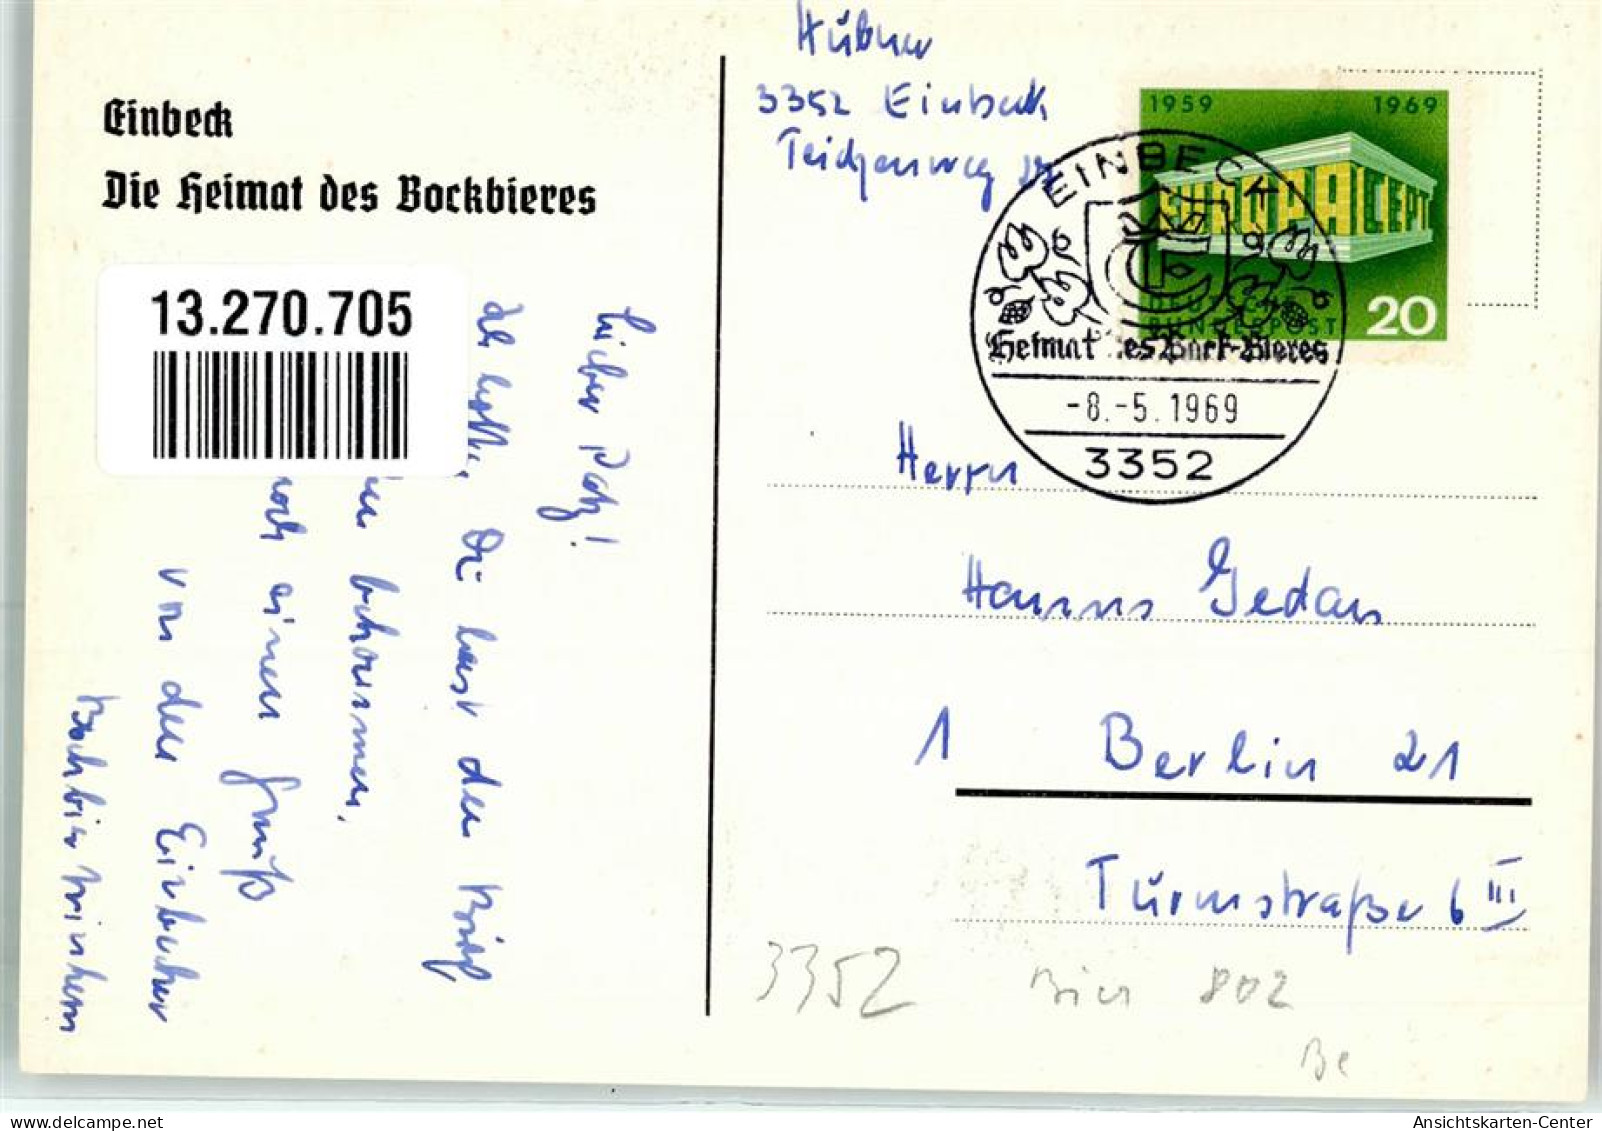 Einbeck
Die Heimat des Bockbieres
13.270.705
Lieber Patz!
Du hast den Brief,
bekommen.
noch einen Gruß
von den Einbecker
Bockbiertrinkern
Hübner
3352 Einbeck
Teichenweg
1959 1969
EUROPA CEPT
DEUTSCHE
BUNDESPOST
20
EINBECK
Heimat des Bock-Bieres
-8.-5.1969
3352
Herrn
Hanns Gedan
1 Berlin 21
Turmstraße 6 III
3352 Bier 802
Be
Ansichtskarten-Center